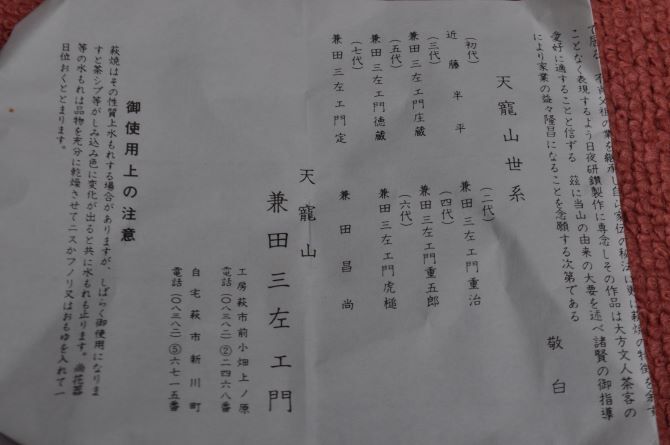 で居る 不肖父祖の業を継承し自ら家伝の秘法に更に萩焼の特徴を余す
ことなく表現するよう日夜研鑽製作に専念しその作品は大方文人茶客の
愛好に適することと信ずる 茲に当山の由来の大要を述べ諸賢の御指導
により家業の益々隆昌になることを念願する次第である
敬白
天寵山世系
(初代)
近藤半平
(二代)
兼田三左エ門重治
(三代)
兼田三左エ門庄蔵
(四代)
兼田三左エ門重五郎
(五代)
兼田三左エ門徳蔵
(六代)
兼田三左エ門虎槌
(七代)
兼田三左エ門定
兼田昌尚
天寵山
兼田三左エ門
工房萩市前小畑上ノ原
電話(〇八三八二)②二四六八番
自宅萩市新川町
電話(〇八三八二)⑤六七一五番
御使用上の注意
萩焼はその性質上水もれする場合がありますが、しばらく御使用になりま
すと茶シブ等がしみ込み色に変化が出ると共に水もれも止ります。尚花器
等の水もれは品物を充分に乾燥させてニスかフノリ又はおもゆを入れて一
日位おくととまります。